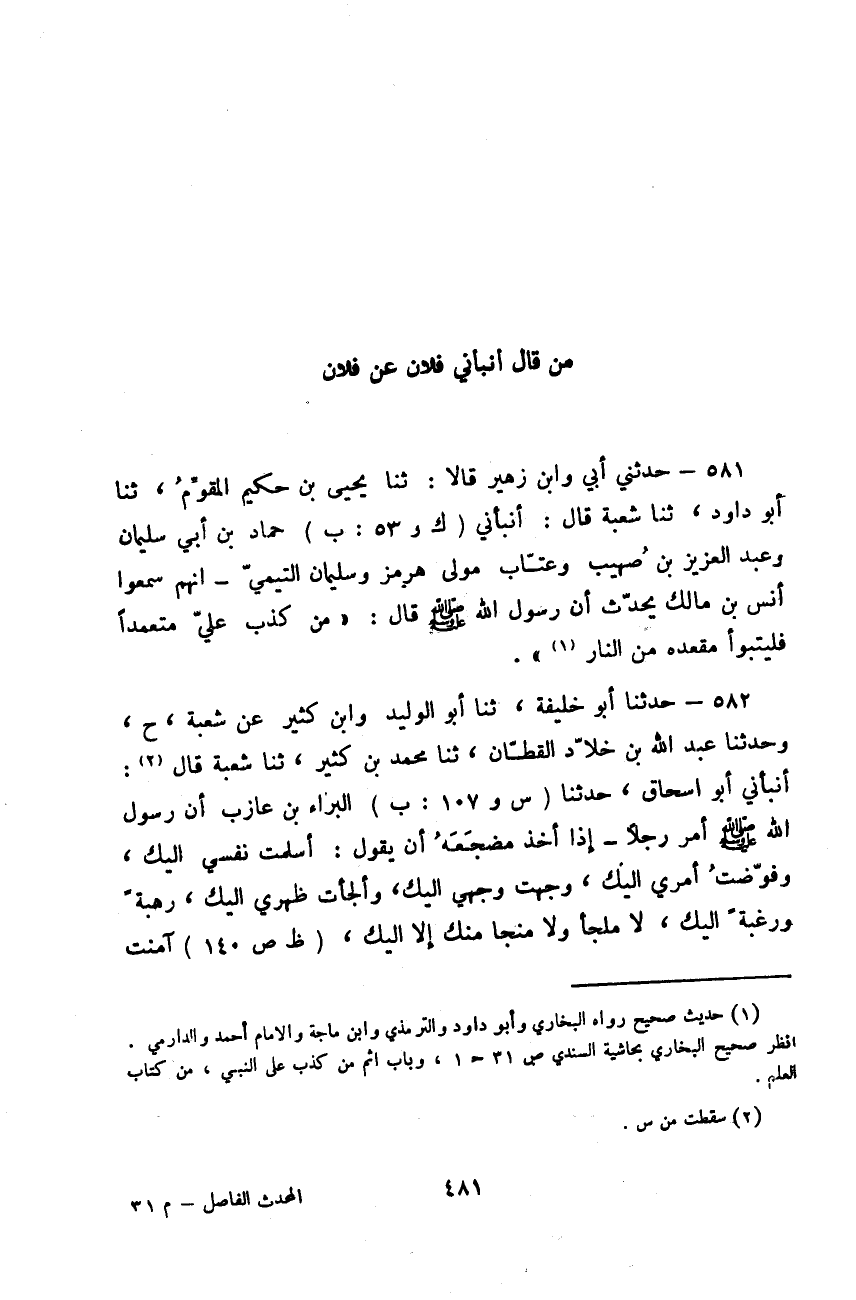 من قال أنبأني فلان عن فلان
٥٨١ – حدثني أبي وابن زهير قالا : ثنا يحيى بن حكيم المقوّمُ ، ثنا
أبو داود ، ثنا شعبة قال : أنبأني ( ك و ٥٣ : ب ) حماد بن أبي سليمان
وعبد العزيز بن صُهيب وعتّاب مولى هرمز وسليمان التيميّ – انهم سمعوا
أنس بن مالك يحدّث أن رسول الله ﷺ قال : « من كذب عليّ متعمداً
فليتبوأ مقعده من النار (١) » .
٥٨٢ – حدثنا أبو خليفة ، ثنا أبو الوليد وابن كثير عن شعبة ، ح ،
وحدثنا عبد الله بن خلاّد القطّان ، ثنا محمد بن كثير ، ثنا شعبة قال (٢) :
أنبأني أبو اسحاق ، حدثنا ( س و ١٠٧ : ب ) البراء بن عازب أن رسول
الله ﷺ أمر رجلاً – إذا أخذ مضجَعَهُ أن يقول : أسلمت نفسي اليك ،
وفوّضتُ أمري اليك ، وجهت وجهي اليك، وألجأت ظهري اليك ، رهبةً
ورغبةً اليك ، لا ملجأ ولا منجا منك إلا اليك ، ( ظ ص ١٤٠ ) آمنت
(١) حديث صحيح رواه البخاري وأبو داود والترمذي وابن ماجة والامام أحمد والدارمي .
انظر صحيح البخاري بحاشية السندي ص ٣١ ح ١ ، وباب اثم من كذب على النبي ، من كتاب
العلم .
(٢) سقطت من س .
٤٨١
المحدث الفاصل – م ٣١